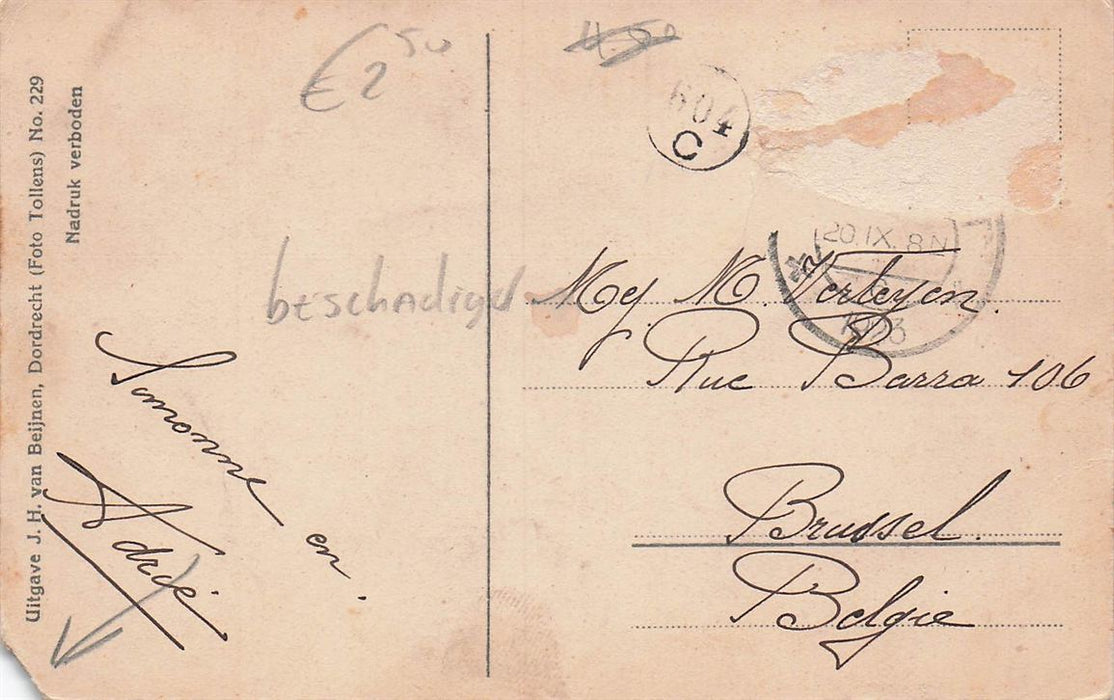 Uitgave J. H. van Beijnen, Dordrecht (Foto Tollens) No. 229
Nadruk verboden
€ 2 50
4.50
604
C
20.IX. 8N
beschadigd
Mej. M. Verleyen.
Rue Barra 106
Brussel.
Belgie
Simonne en.
Adrié